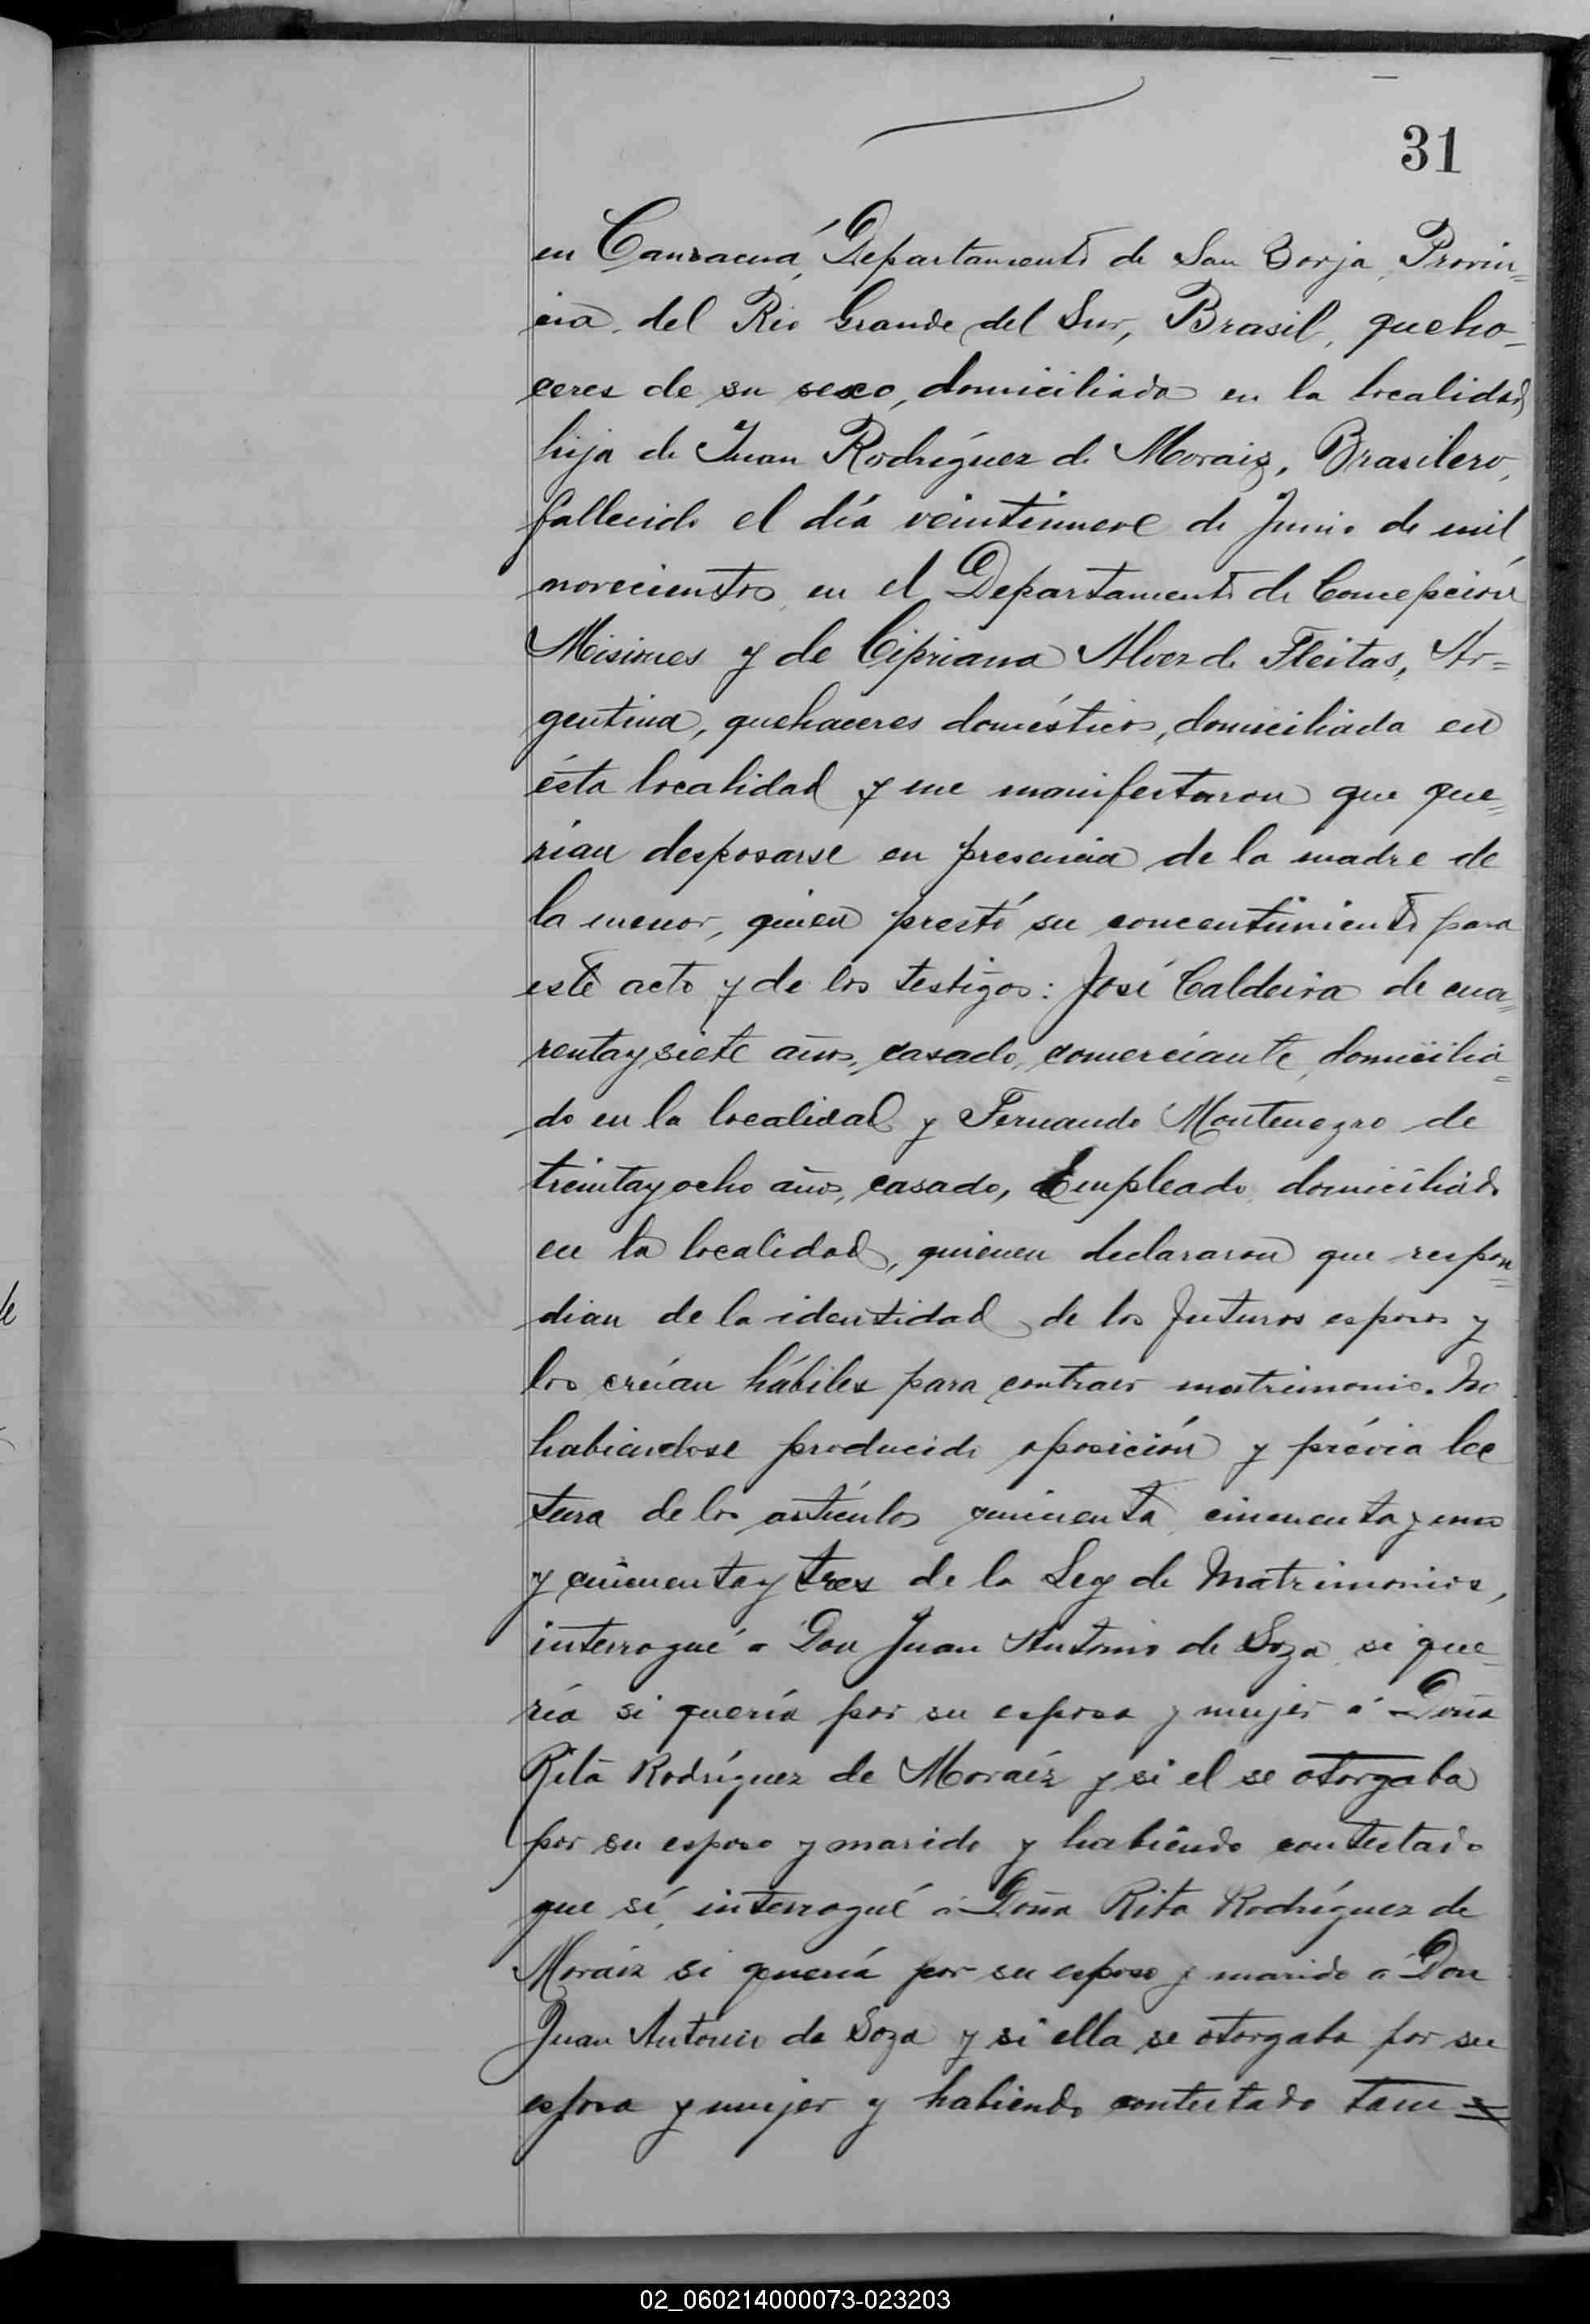 31
en Departamento de San Borja, Provin=
cia del Rio Grande del Sur, Brasil, queha-
ceres de su sexo, domiciliada en la localidad
hija de Juan Rodríguez de Moraiz, Brasilero,
fallecido el día veintinueve de Junio de mil
novecientos, en el Departamento de Concepción
Misiones y de Cipriana Alvez de Fleitas, Ar=
gentina, quehaceres domésticos, domiciliada en
ésta localidad y me manifestaron que que=
rian desposarse en presencia de la madre de
la menor, quien prestó su concentimiento para
este acto y de los testigos: José Caldeira de cua=
rentaysiete años, casado, comerciante, domicilia=
do en la localidad y Fernando Montenegro de
treintayocho años, casado, Empleado, domiciliado
en la localidad, quienen declararon que respon=
dian de la identidad de los futuros esposos y
los creían hábiles para contraer matrimonio. No
habiendose producido oposición y prévia lec
tura de los artículos cincuenta y uno
y cincuentay tres de la Ley de Matrimonios,
interrogué a Don Juan Antonio de Soza, si que-
ría si quería por su esposa y mujer á Doña
Rita Rodríguez de Moraíz y si el se otorgaba
por su esposo y marido y habiendo contestado
que sí, interrogué á Doña Rita Rodríguez de
Moraíz si quería por su esposo y marido á Don
Juan Antonio de Soza y si ella se otorgaba por su
esposa y mujer y habiendo contestado tam=
02_060214000073-023203